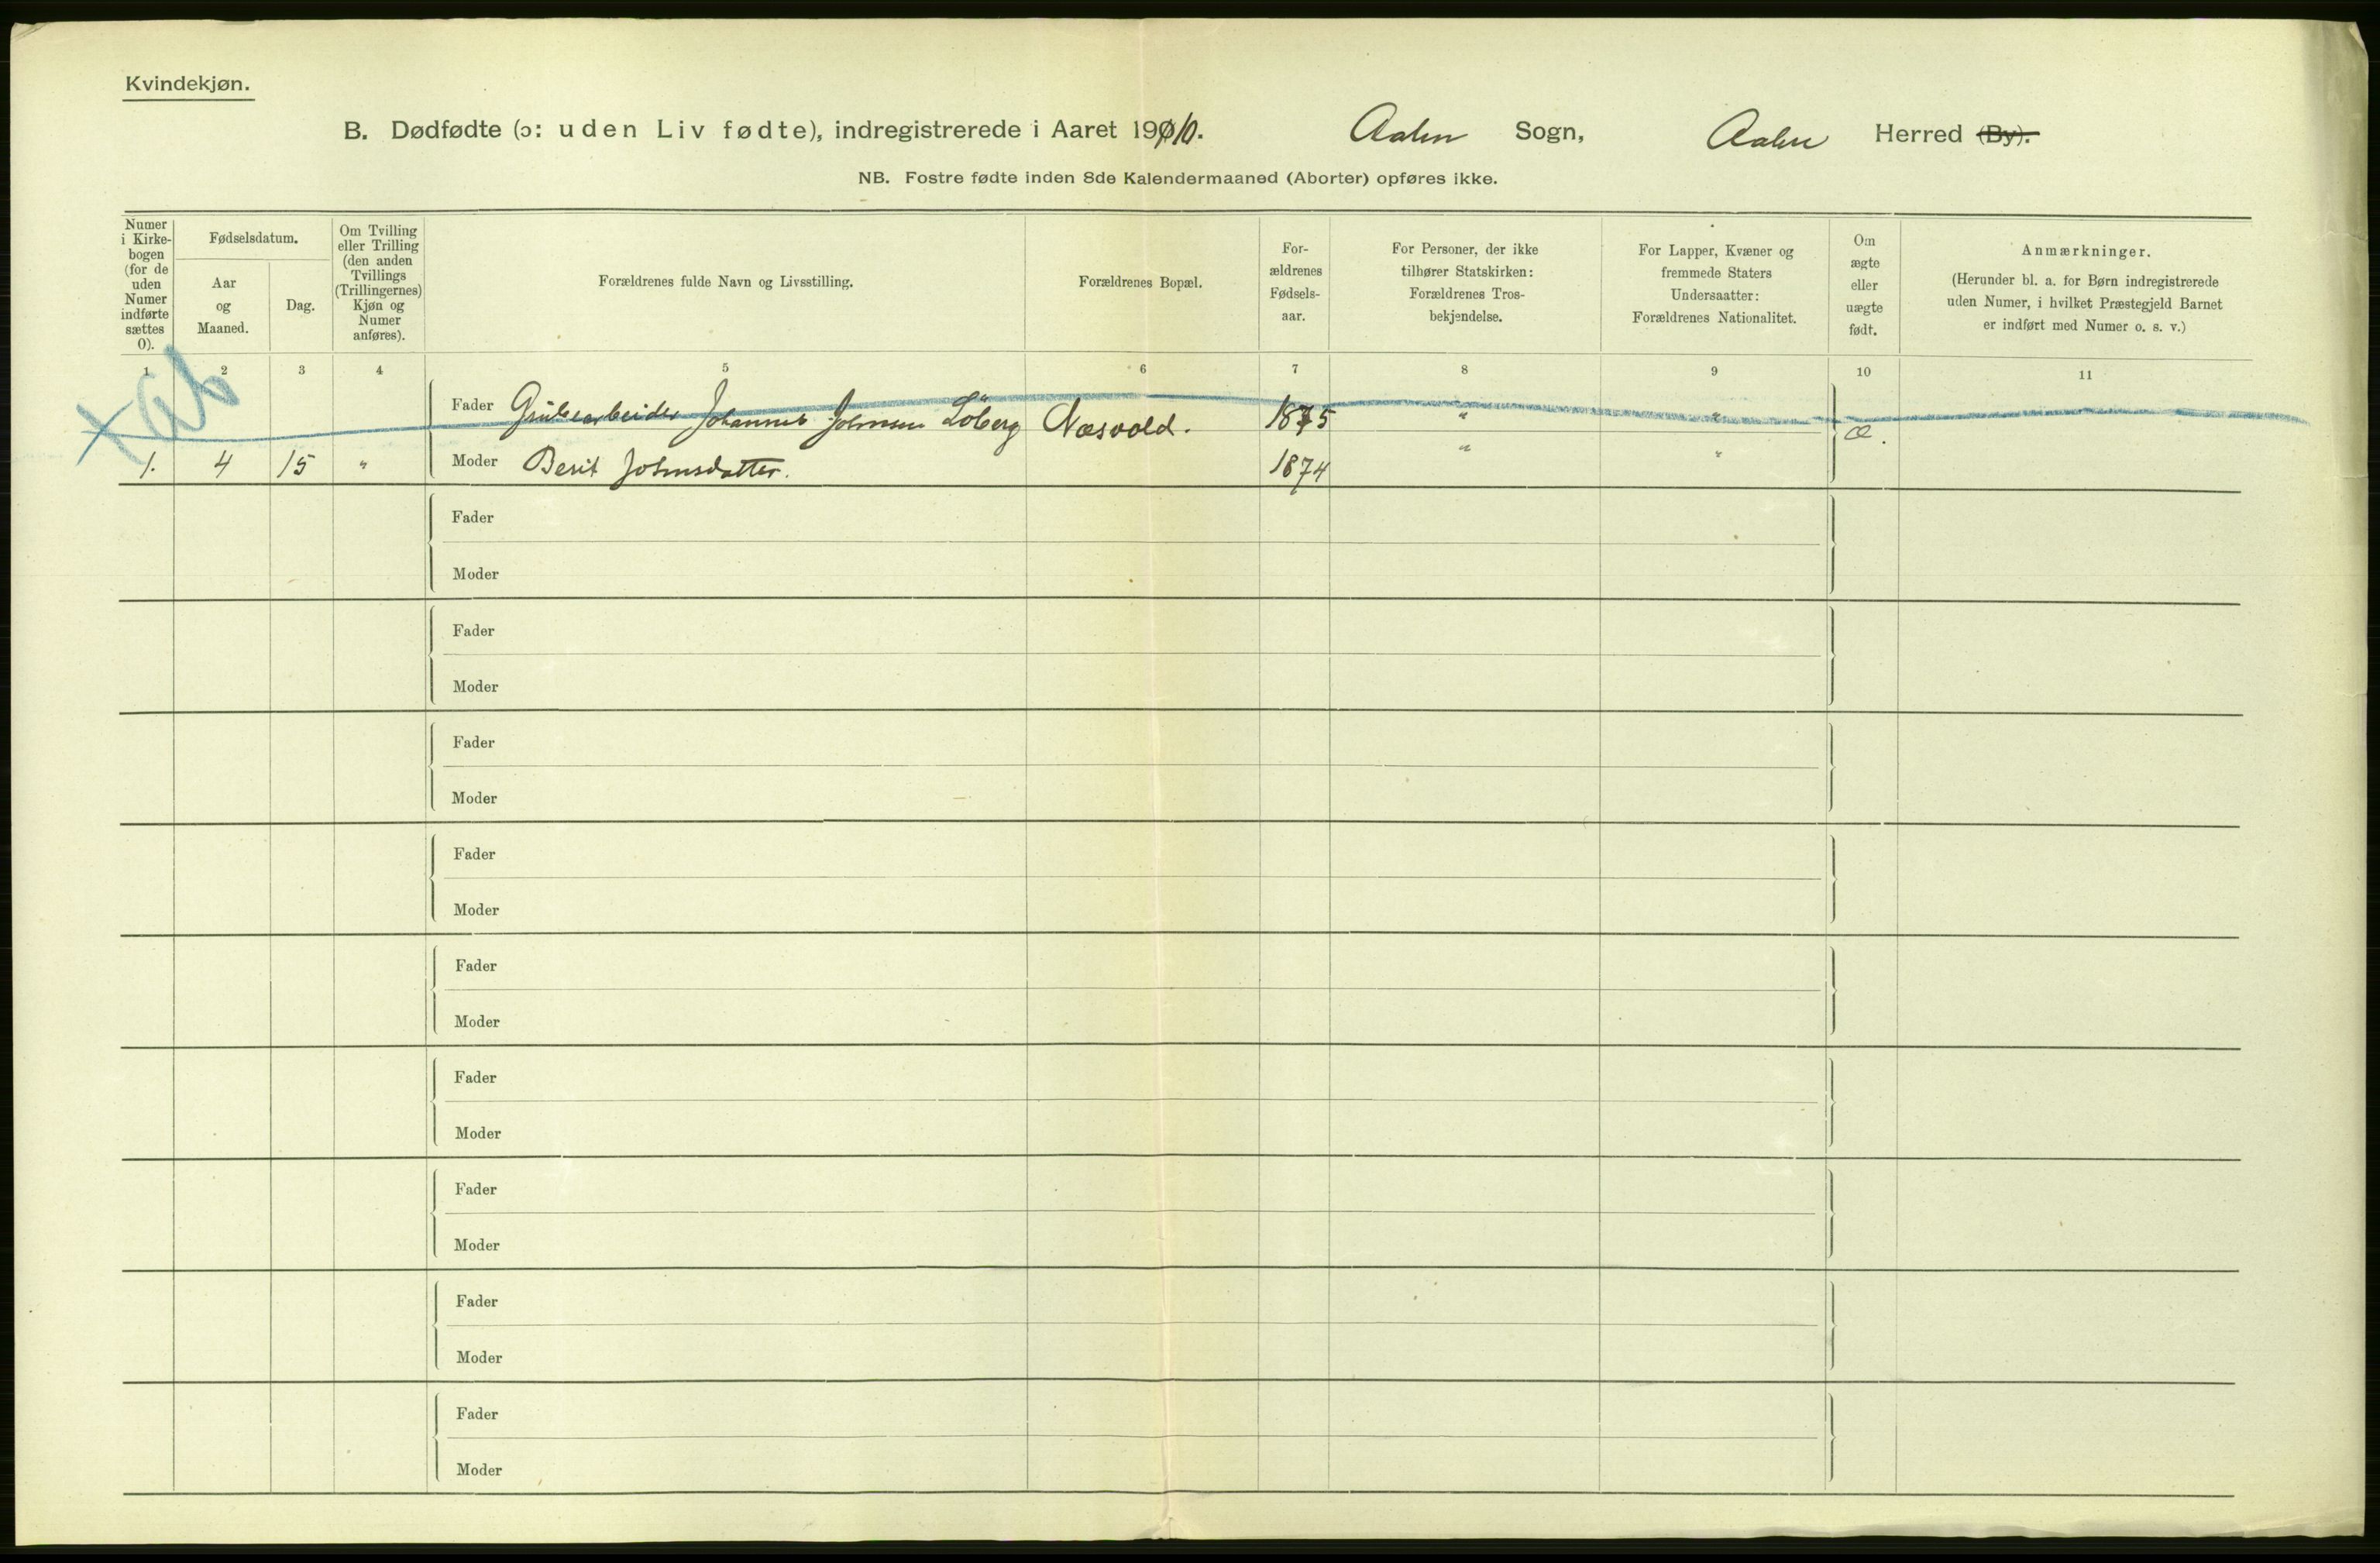 Kvindekjøn.
B. Dødfødte (ɔ: uden Liv fødte), indregistrerede i Aaret 1910. Aalen Sogn, Aalen Herred (By).
NB. Fostre fødte inden 8de Kalendermaaned (Aborter) opføres ikke.
Numer
i Kirke-
bogen
(for de
uden
Numer
indførte
sættes
0).
Fødselsdatum.
Aar
og
Maaned.
Dag.
Om Tvilling
eller Trilling
(den anden
Tvillings
(Trillingernes)
Kjøn og
Numer
anføres).
Forældrenes fulde Navn og Livsstilling.
Forældrenes Bopæl.
For-
ældrenes
Fødsels-
aar.
For Personer, der ikke
tilhører Statskirken:
Forældrenes Tros-
bekjendelse.
For Lapper, Kvæner og
fremmede Staters
Undersaatter:
Forældrenes Nationalitet.
Om
ægte
eller
uægte
født.
Anmærkninger.
(Herunder bl. a. for Børn indregistrerede
uden Numer, i hvilket Præstegjeld Barnet
er indført med Numer o. s. v.)
1 2 3 4 5 6 7 8 9 10 11
Fader Grubearbeider Johannes Johnsen Löberg Næsvold. 1875 " " æ.
1. 4 15 " Moder Berit Johnsdatter. 1874 " "
Fader
Moder
Fader
Moder
Fader
Moder
Fader
Moder
Fader
Moder
Fader
Moder
Fader
Moder
Fader
Moder
Fader
Moder